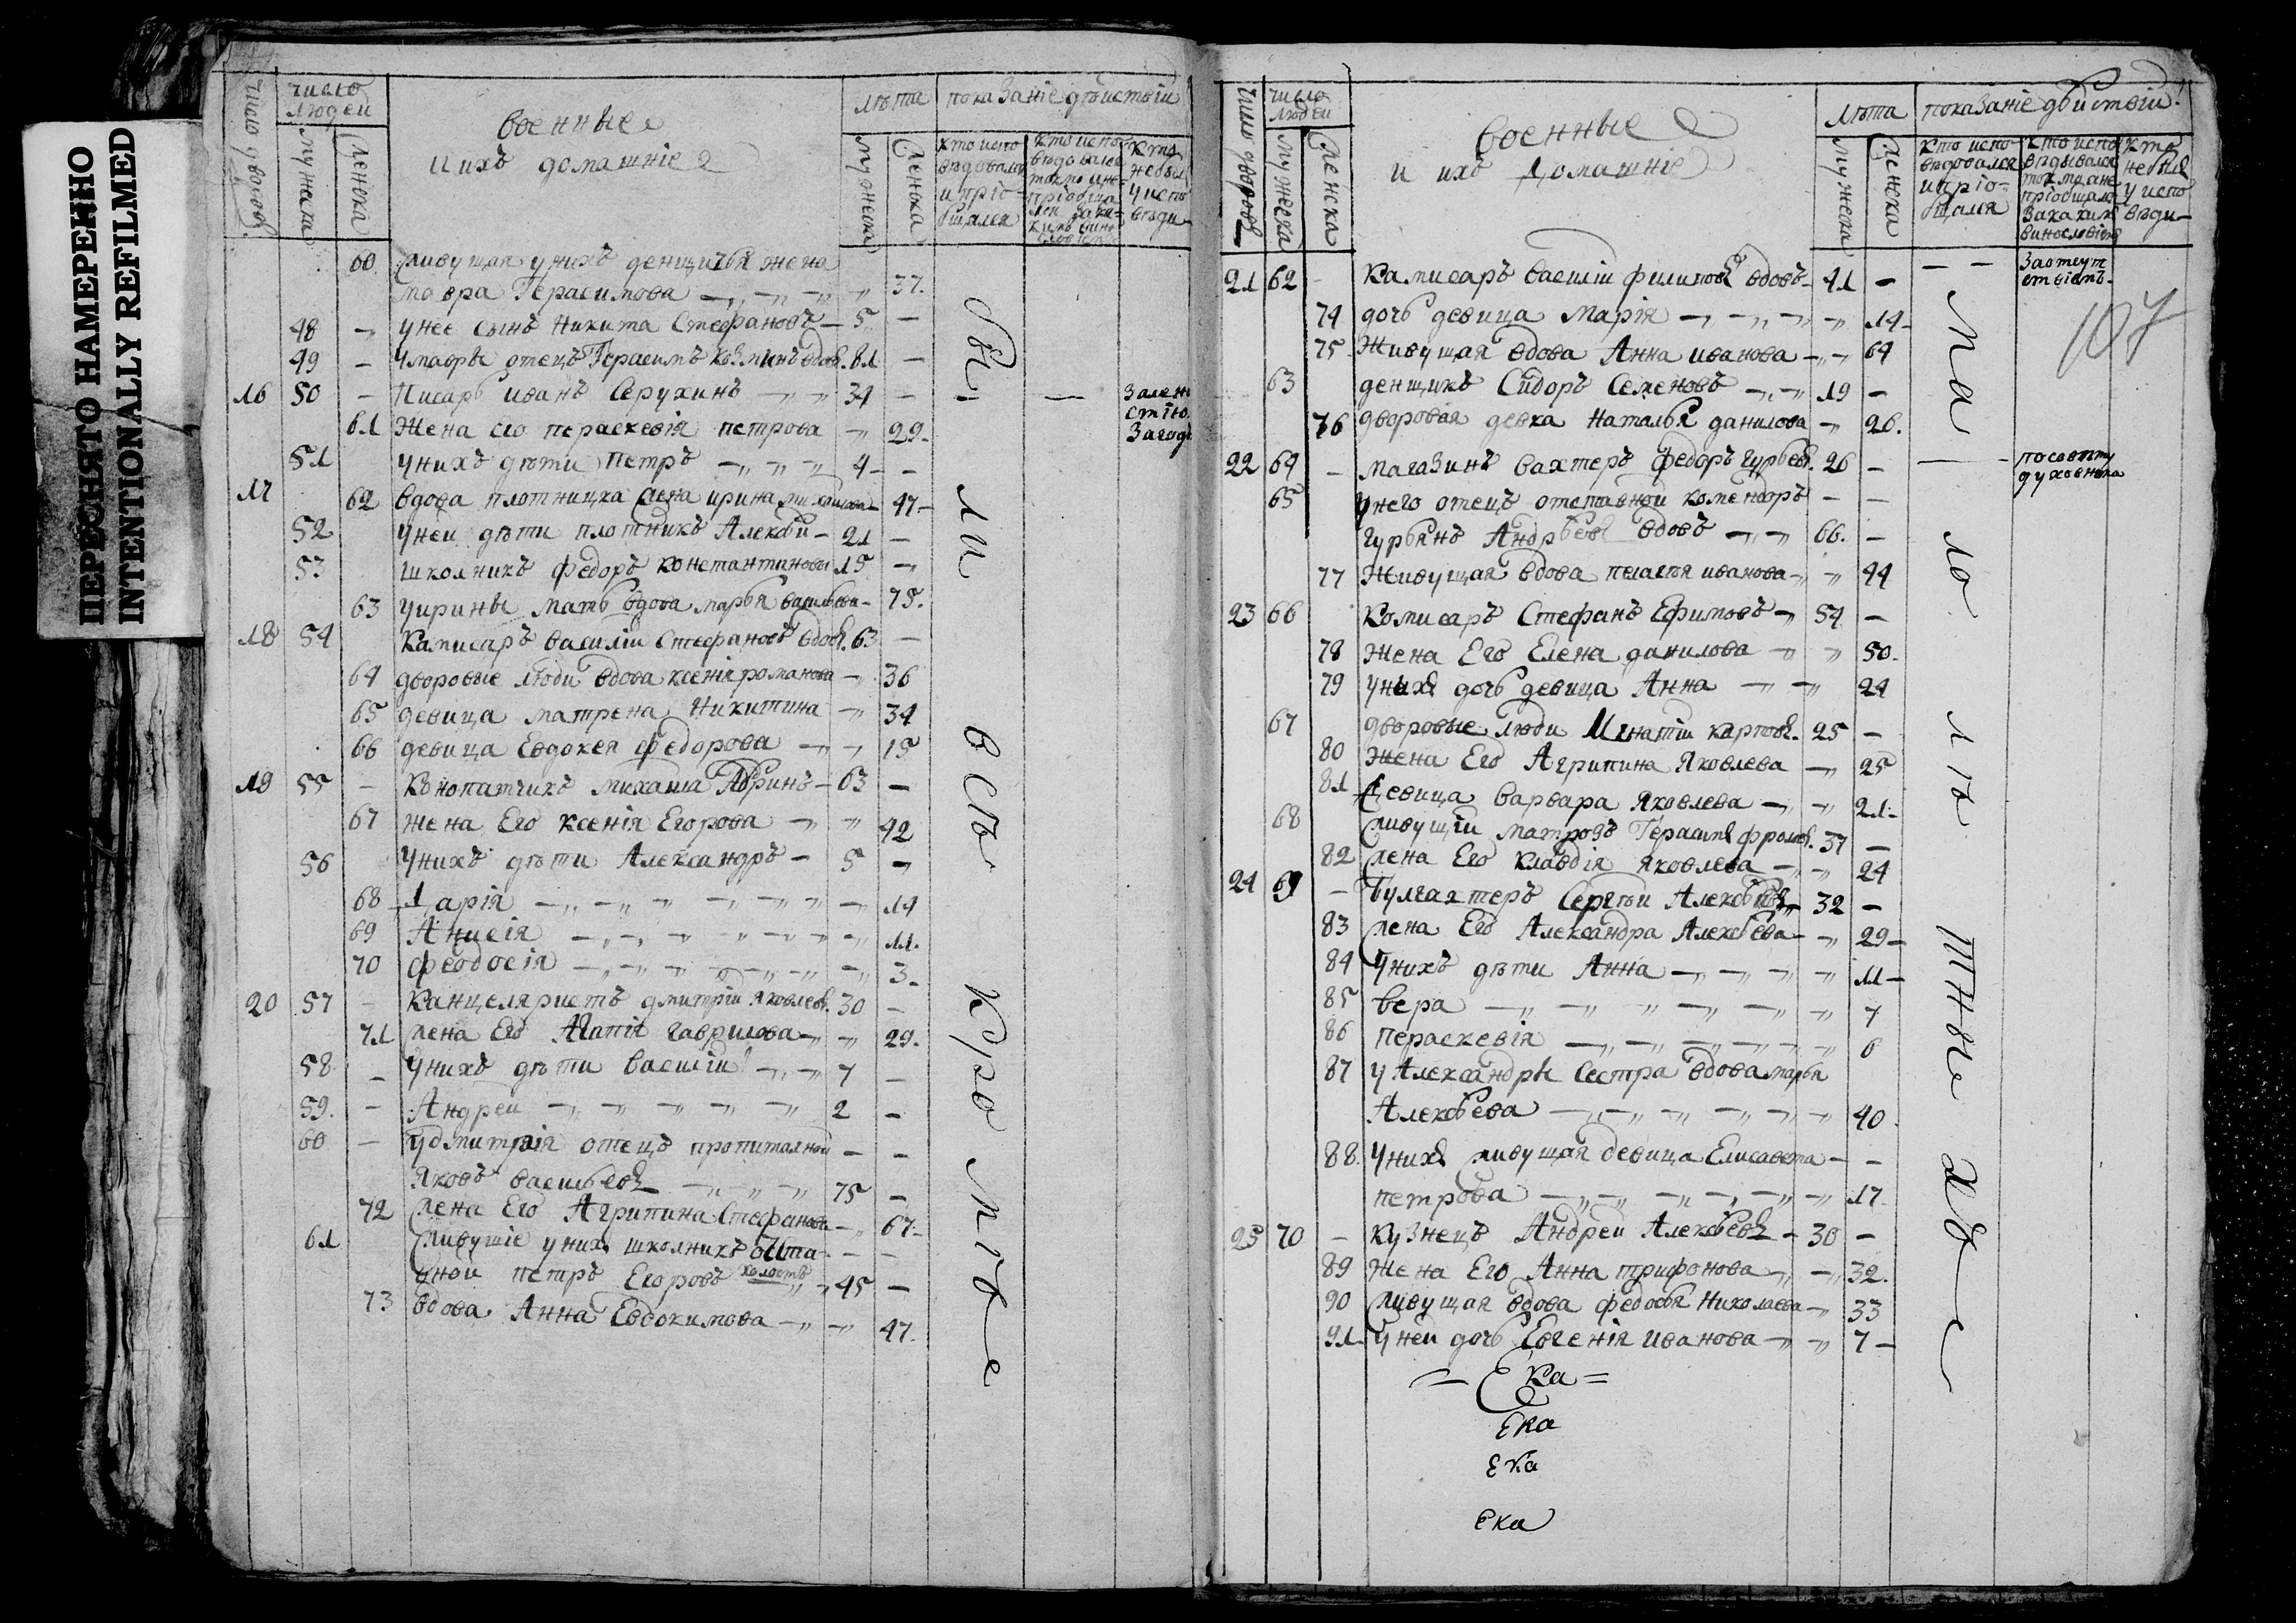 ПЕРЕСНЯТО НАМЕРЕННО
INTENTIONALLY REFILMED
число дворовъ
число людей
мужеска
женска
военныя
и ихъ домашніе
лѣта
показаніе дѣиствіи
мужеска
женска
кто испо-
вѣдовался
и пріо-
бщался
кто испо-
вѣдовался
токмо а не
пріобща
лся зака-
кимъ вино
словіемъ
кто
не былъ
у испо
вѣди
60 живущая у нихъ денщичья жена
мавра Герасимова 37.
48 у нее сынъ Никита Стефановъ 5
49 У мавры отецъ Герасимъ козминъ вдов. 81
16 50 Писарь иванъ Серухинъ 34
61 Жена его параскевія петрова 29.
51 у нихъ дѣти Петръ 4
17 62 вдова плотницка жена ирина михаилова 47
52 у неи дѣти плотникъ Алексѣи 21
53 школникъ федоръ константиновъ 15
63 у ирины мать вдова марья василева 75.
18 54 Камисаръ василіи Стефановъ вдовъ. 63
64 дворовые люди вдова ксенія романова 36
65 девица матрена Никитина 34
66 девица Евдокея федорова 15
19 55 Конопатчикъ михаила 63
67 жена Его ксенія Егорова 42
56 У нихъ дѣти Александръ 5
68 Дарія 14
69 Анисія 11.
70 феодосія 3.
20 57 Канцеляристъ дмитріи Яковлевъ. 30
71 жена Его Агапія гаврилова 29.
58 У нихъ дѣти василіи 7
59. Андреи 2
60 У дмитрія отецъ пропиталнои
Яковъ васильевъ 75
72 жена Его Агрипина Стефанова 67.
61 живущіе у нихъ школникъ отста-
внои петръ Егоровъ холостъ 45
73 вдова Анна Евдокимова 47.
бы
ли
всѣ
кромѣ
число дворовъ
число людей
мужеска
женска
военныя
и ихъ домашніе
лѣта
показаніе дѣйствіи
мужеска
женска
кто испо-
вѣдовался
и пріо-
бщался
кто испо
вѣдывался
токмо а не
пріобщался
за какимъ
винословіем
кто
не былъ
у испо
вѣди
107
21 62 камисаръ василіи филиповъ вдовъ 41
За отсут
ствіемъ.
74 дочь девица Марія 14
75 Живущая вдова Анна иванова 64
63 денщикъ Сидоръ Семеновъ 19
76 дворовая девка Наталья данилова 26.
22 64 магазинъ вахтеръ федоръ гурьевъ. 26
по совѣту
духовника
65 у него отецъ отставнои комендоръ
гурьянъ Андрѣевъ вдовъ 66.
77 Живущая вдова пелагея иванова 44
23 66 Комисаръ Стефанъ Ефимовъ 54
78 Жена Его Елена данилова 50.
79 у нихъ дочь девица Анна 24
67 дворовые люди Игнатіи карповъ. 25
80 Жена Его Агрипина Яковлева 25
81 Девица варвара Яковлева 21.
68 живущіи матрозъ Герасимъ фроловъ. 37
82 жена Его клавдія яковлева 24
24 69 Булгахтеръ Сергѣи Алексѣевъ 32
83 жена Его Александра Алексѣева 29
84 у нихъ дѣти Анна 11
85 вера 7
86 параскевія 6
87 у Александры Сестра вдова марья
Алексѣева 40
88. У нихъ живущая девица Елисавета
петрова 17
25 70 кузнецъ Андреи Алексѣевъ 30
89 Жена Его Анна трифонова 32.
90 живущая вдова федосья Николаева 33
91 у неи дочь Евгенія иванова 7
мало
лѣ
тныхъ
Ека
Ека
Ека
Ека